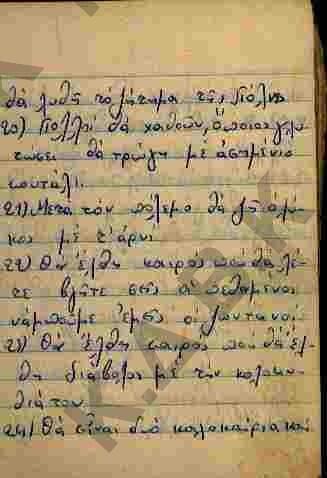 θά λυθῆ τό ζήτημα τῆς Πόλης
20) Πολλοί θά χαθοῦν, ὅποιος γλυ
τώσει θά τρώγη μέ ἀσημένιο
κουτάλι.
21) Μετά τόν πόλεμο θά ζῆ ὁ λύ
κος μέ τ' ἀρνί
22) Θά ἔλθη καιρός πού θά λέ
τε βγῆτε σεῖς οἱ πεθαμένοι
νάμποῦμε ἐμεῖς οἱ ζωντανοί.
23) Θά ἔλθη καιρός που θά ἔλ
θη διάβολος μέ την κολοκυ
θιά του.
24) Θά εἶναι δυό καλοκαίρια καί
Κ.Α.Β.Κ